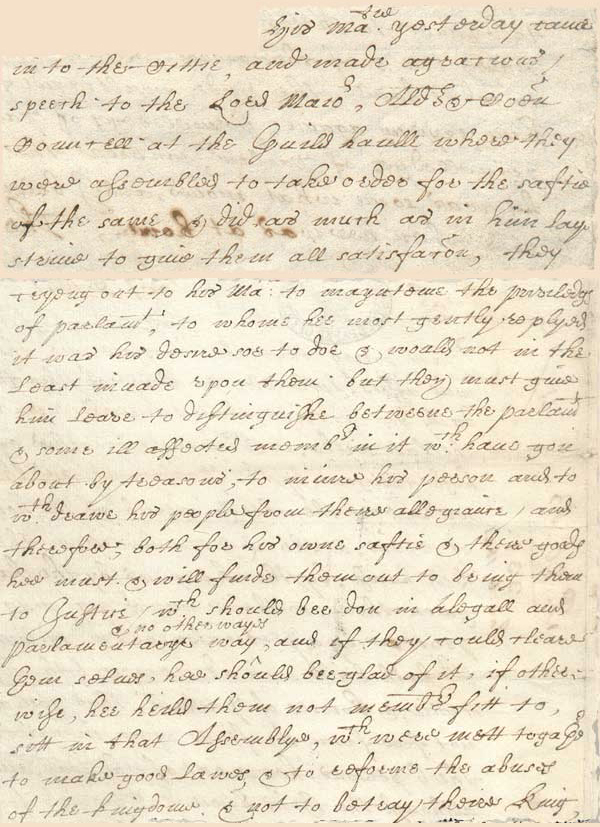 His Ma:tie yesterday came
in to the Cittie, and made a gratious /
speech to the Lord Maior, Ald & Com̄
Councell at the Guild haulle where they
were assembled to take order for the saftie
of the same & did as much as in him lay
striue to giue them all satisfacōn, they
cryeng out to his Ma: to maynteine the priviledg
of parlamt, to whome hee most gently replyed
it was his desire soe to doe & would not in the
Least invade vpon them: but they must giue
him leaue to distinguishe betweene the parlamt
& some ill affected membrs in it wch haue gon
about by treasons, to iniure his person and to
wth drawe his people from theire allegiance / and
therefore, both for his owne saftie & there goods
hee must & will finde them out to bring them
to Justice / wch should bee don in a legall and
& no other wayes
parlamentarye way, and if they could cleare
them selues, hee should bee glad of it, if other=
wise, hee heild them not membrs fitt to,
sitt in that Assemblye, wch were mett togather
to make good Lawes, & to reforme the abuses
of the kingdome & not to betray theire King